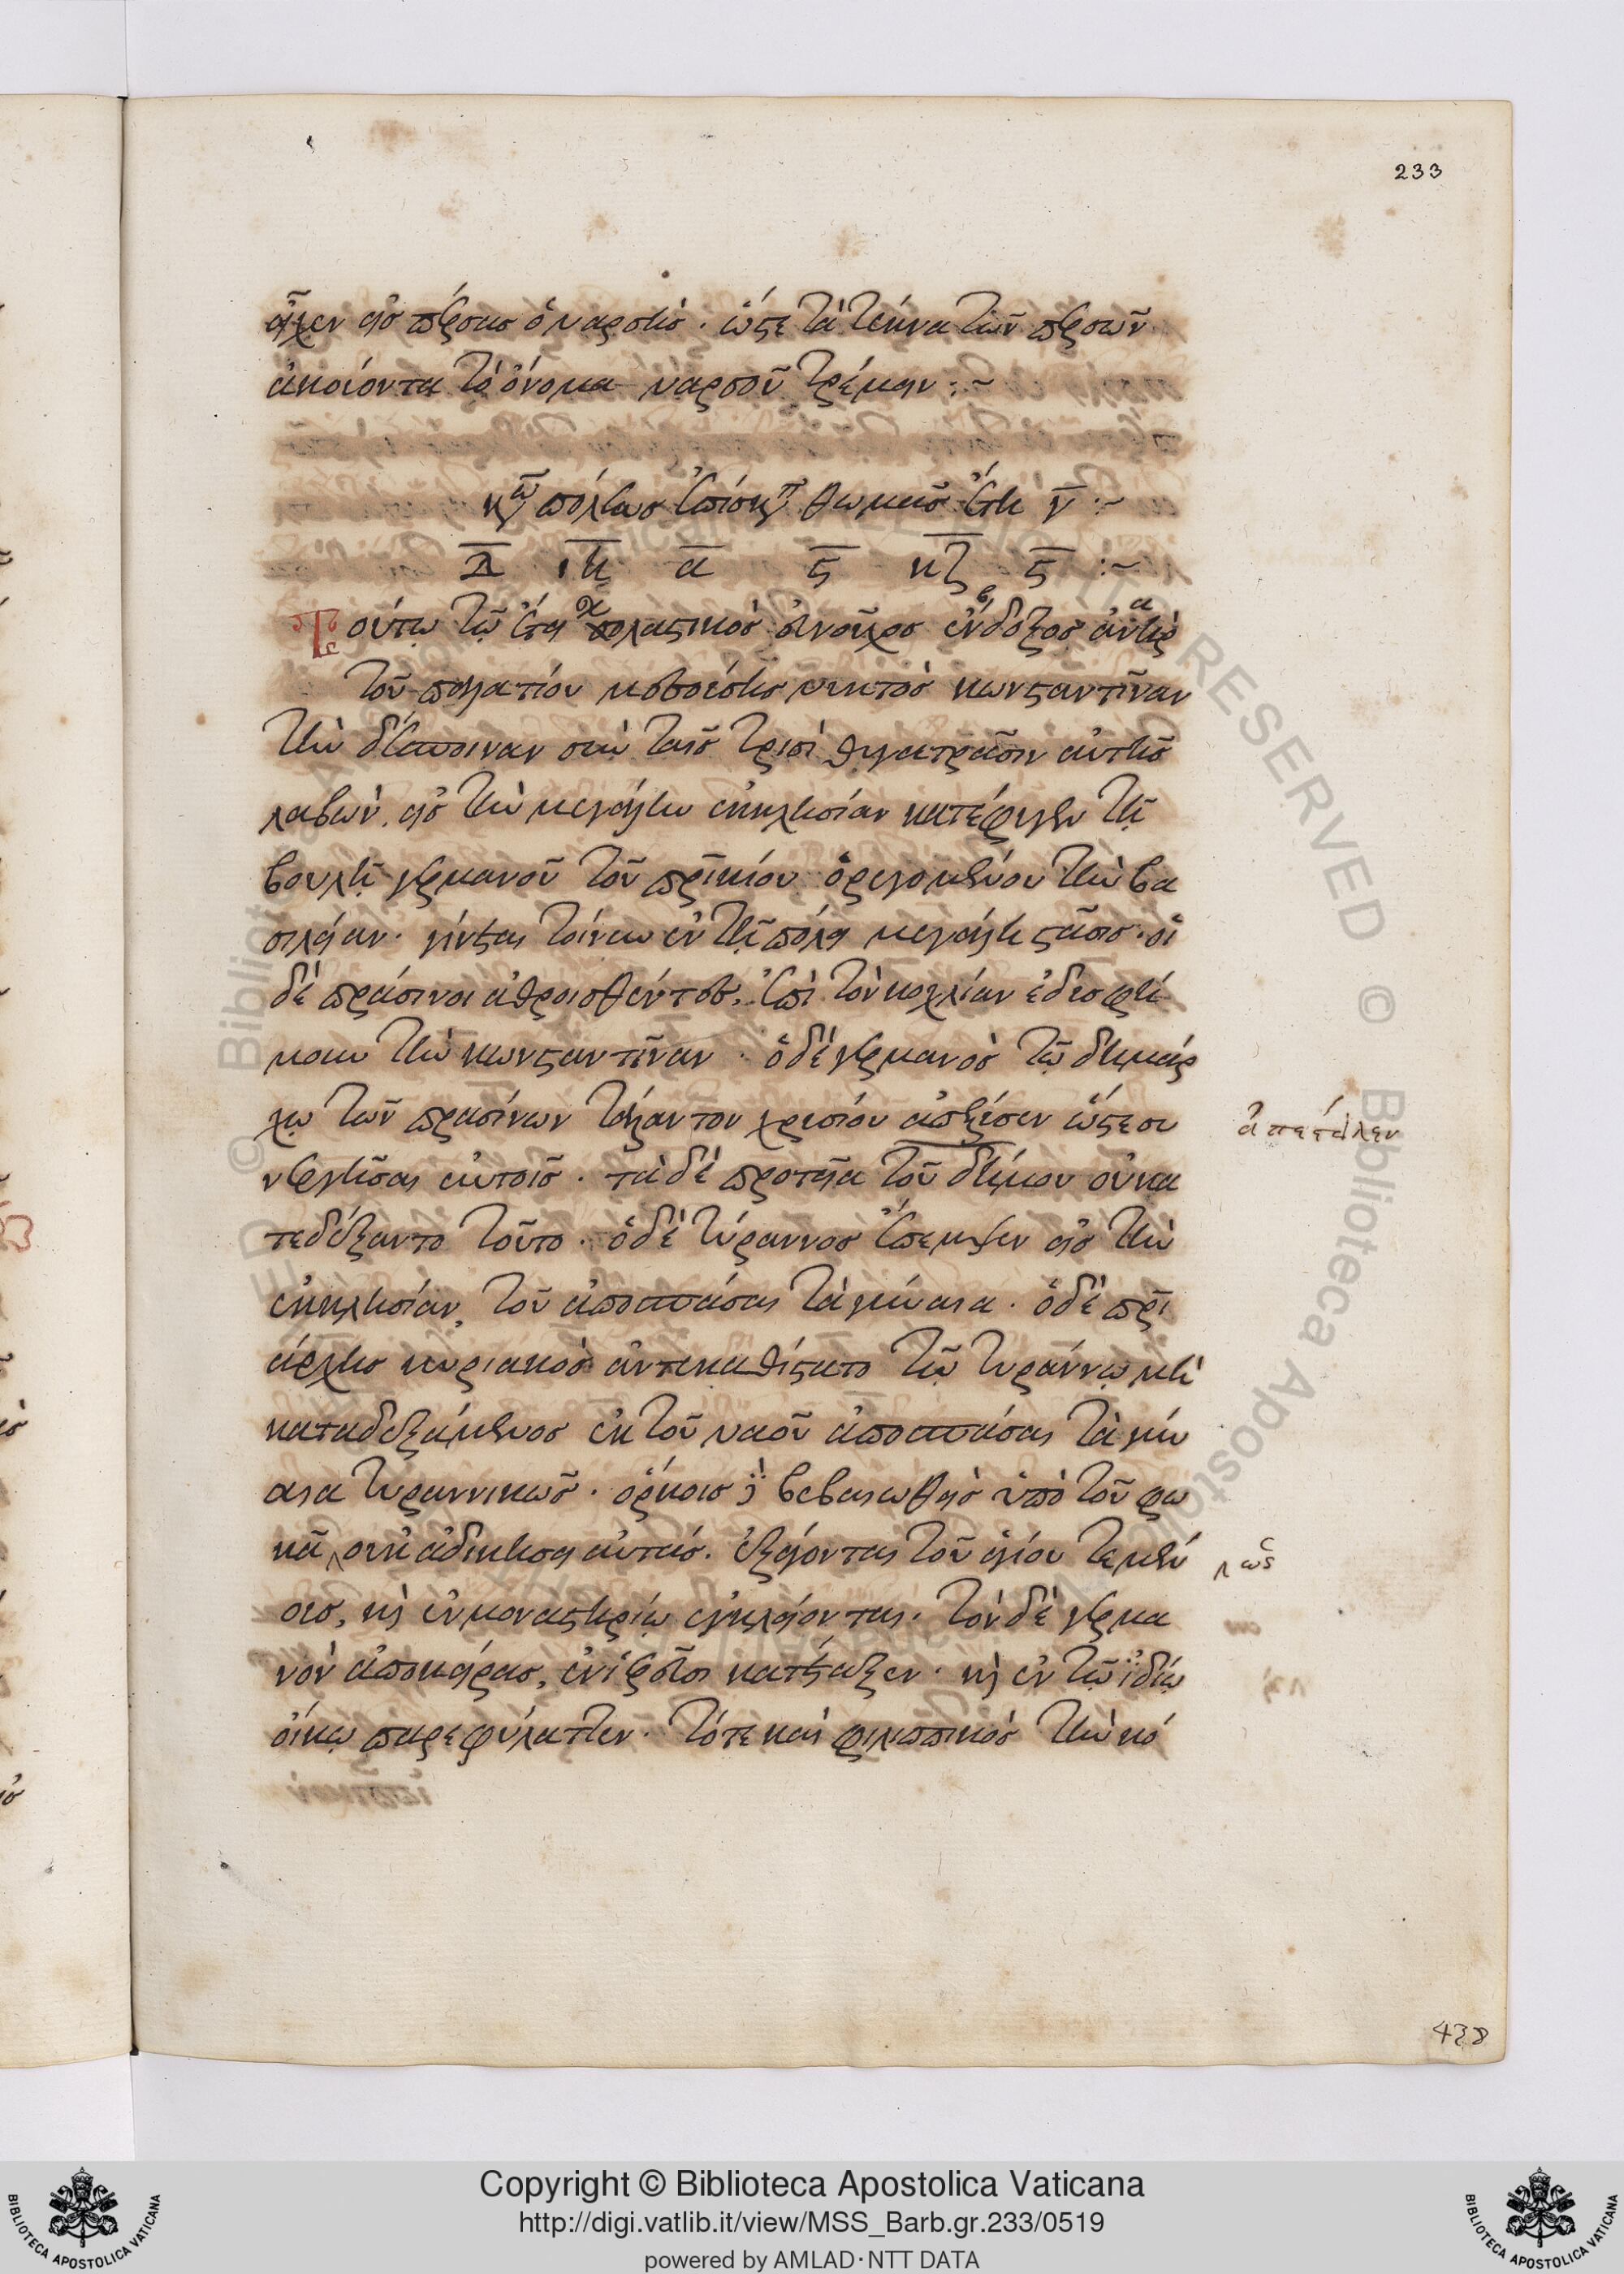 233
εἶχεν εἰς πέρσας ὁ ναρσὴς. ὥστε τὰ τέκνα τῶν περσῶν
ἀκούοντα τὸ ὄνομα ναρσοῦ τρέμειν :~
πόλεως ἐπίσκπ θωμᾶς ἔτη γ :~
λ ιη α ς κζ ς :~
Τούτῳ τῷ ἔτει σχολαστικὸς εὐνοῦχος ἔνδοξος ἀνὴρ
τοῦ παλατίου προσποιεῖται νυκτὸς κωνσταντῖναν
τὴν δέσποιναν σὺν ταῖς τρισὶ θυγατράσιν αὐτῆς
λαβὼν, εἰς τὴν μεγάλην ἐκκλησίαν κατέφυγεν τῇ
βουλῇ γερμανοῦ τοῦ πρικίου ὀρεγομένου τὴν βα
σιλείαν. γίνεται τοίνυν ἐν τῇ πόλει μεγάλη στάσις. οἱ
δὲ πράσινοι ἀθροισθέντες, ἐπὶ τὸν κοχλίαν ἐδυσφή
μουν τὴν κωνσταντῖναν. ὁ δὲ γερμανὸς τῷ δημάρ
χῳ τῶν πρασίνων τάλαντον χρυσίου ὥστε συ
ἀπέσταλεν
νεργῆσαι αὐτοῖς. τὰ δὲ προτεῖα τοῦ δήμου οὐ κα
τεδέξαντο τοῦτο. ὁ δὲ τύραννος ἔπεμψεν εἰς τὴν
ἐκκλησίαν, τοῦ ἀποσπάσαι τὰ γύναια. ὁ δὲ πρι
άρχης κυριακὸς ἀντεκαθίστατο τῷ τυράννῳ μὴ
καταδεξάμενος ἐκ τοῦ ναοῦ ἀποσπάσαι τὰ γύν
αια τυραννικῶς. ὅρκοις βεβαιωθεὶς ὑπὸ τοῦ φω
κᾶ, οὐκ ἀδικῆσαι αὐτάς. ἐξάγονται τοῦ ἁγίου τεμέν
ους, καὶ ἐν μοναστηρίῳ ἐγκλείονται. τὸν δὲ γερμα
νὸν ἀποκείρας, ἐν ἱερεῦσι κατέταξεν. καὶ ἐν τῷ ἰδίῳ
οἴκῳ παρεφύλαττεν. τότε καὶ φιλιππικὸς τὴν κό
438
Copyright © Biblioteca Apostolica Vaticana
http://digi.vatlib.it/view/MSS_Barb.gr.233/0519
powered by AMLAD·NTT DATA
BIBLIOTECA APOSTOLICA VATICANA
BIBLIOTECA APOSTOLICA VATICANA